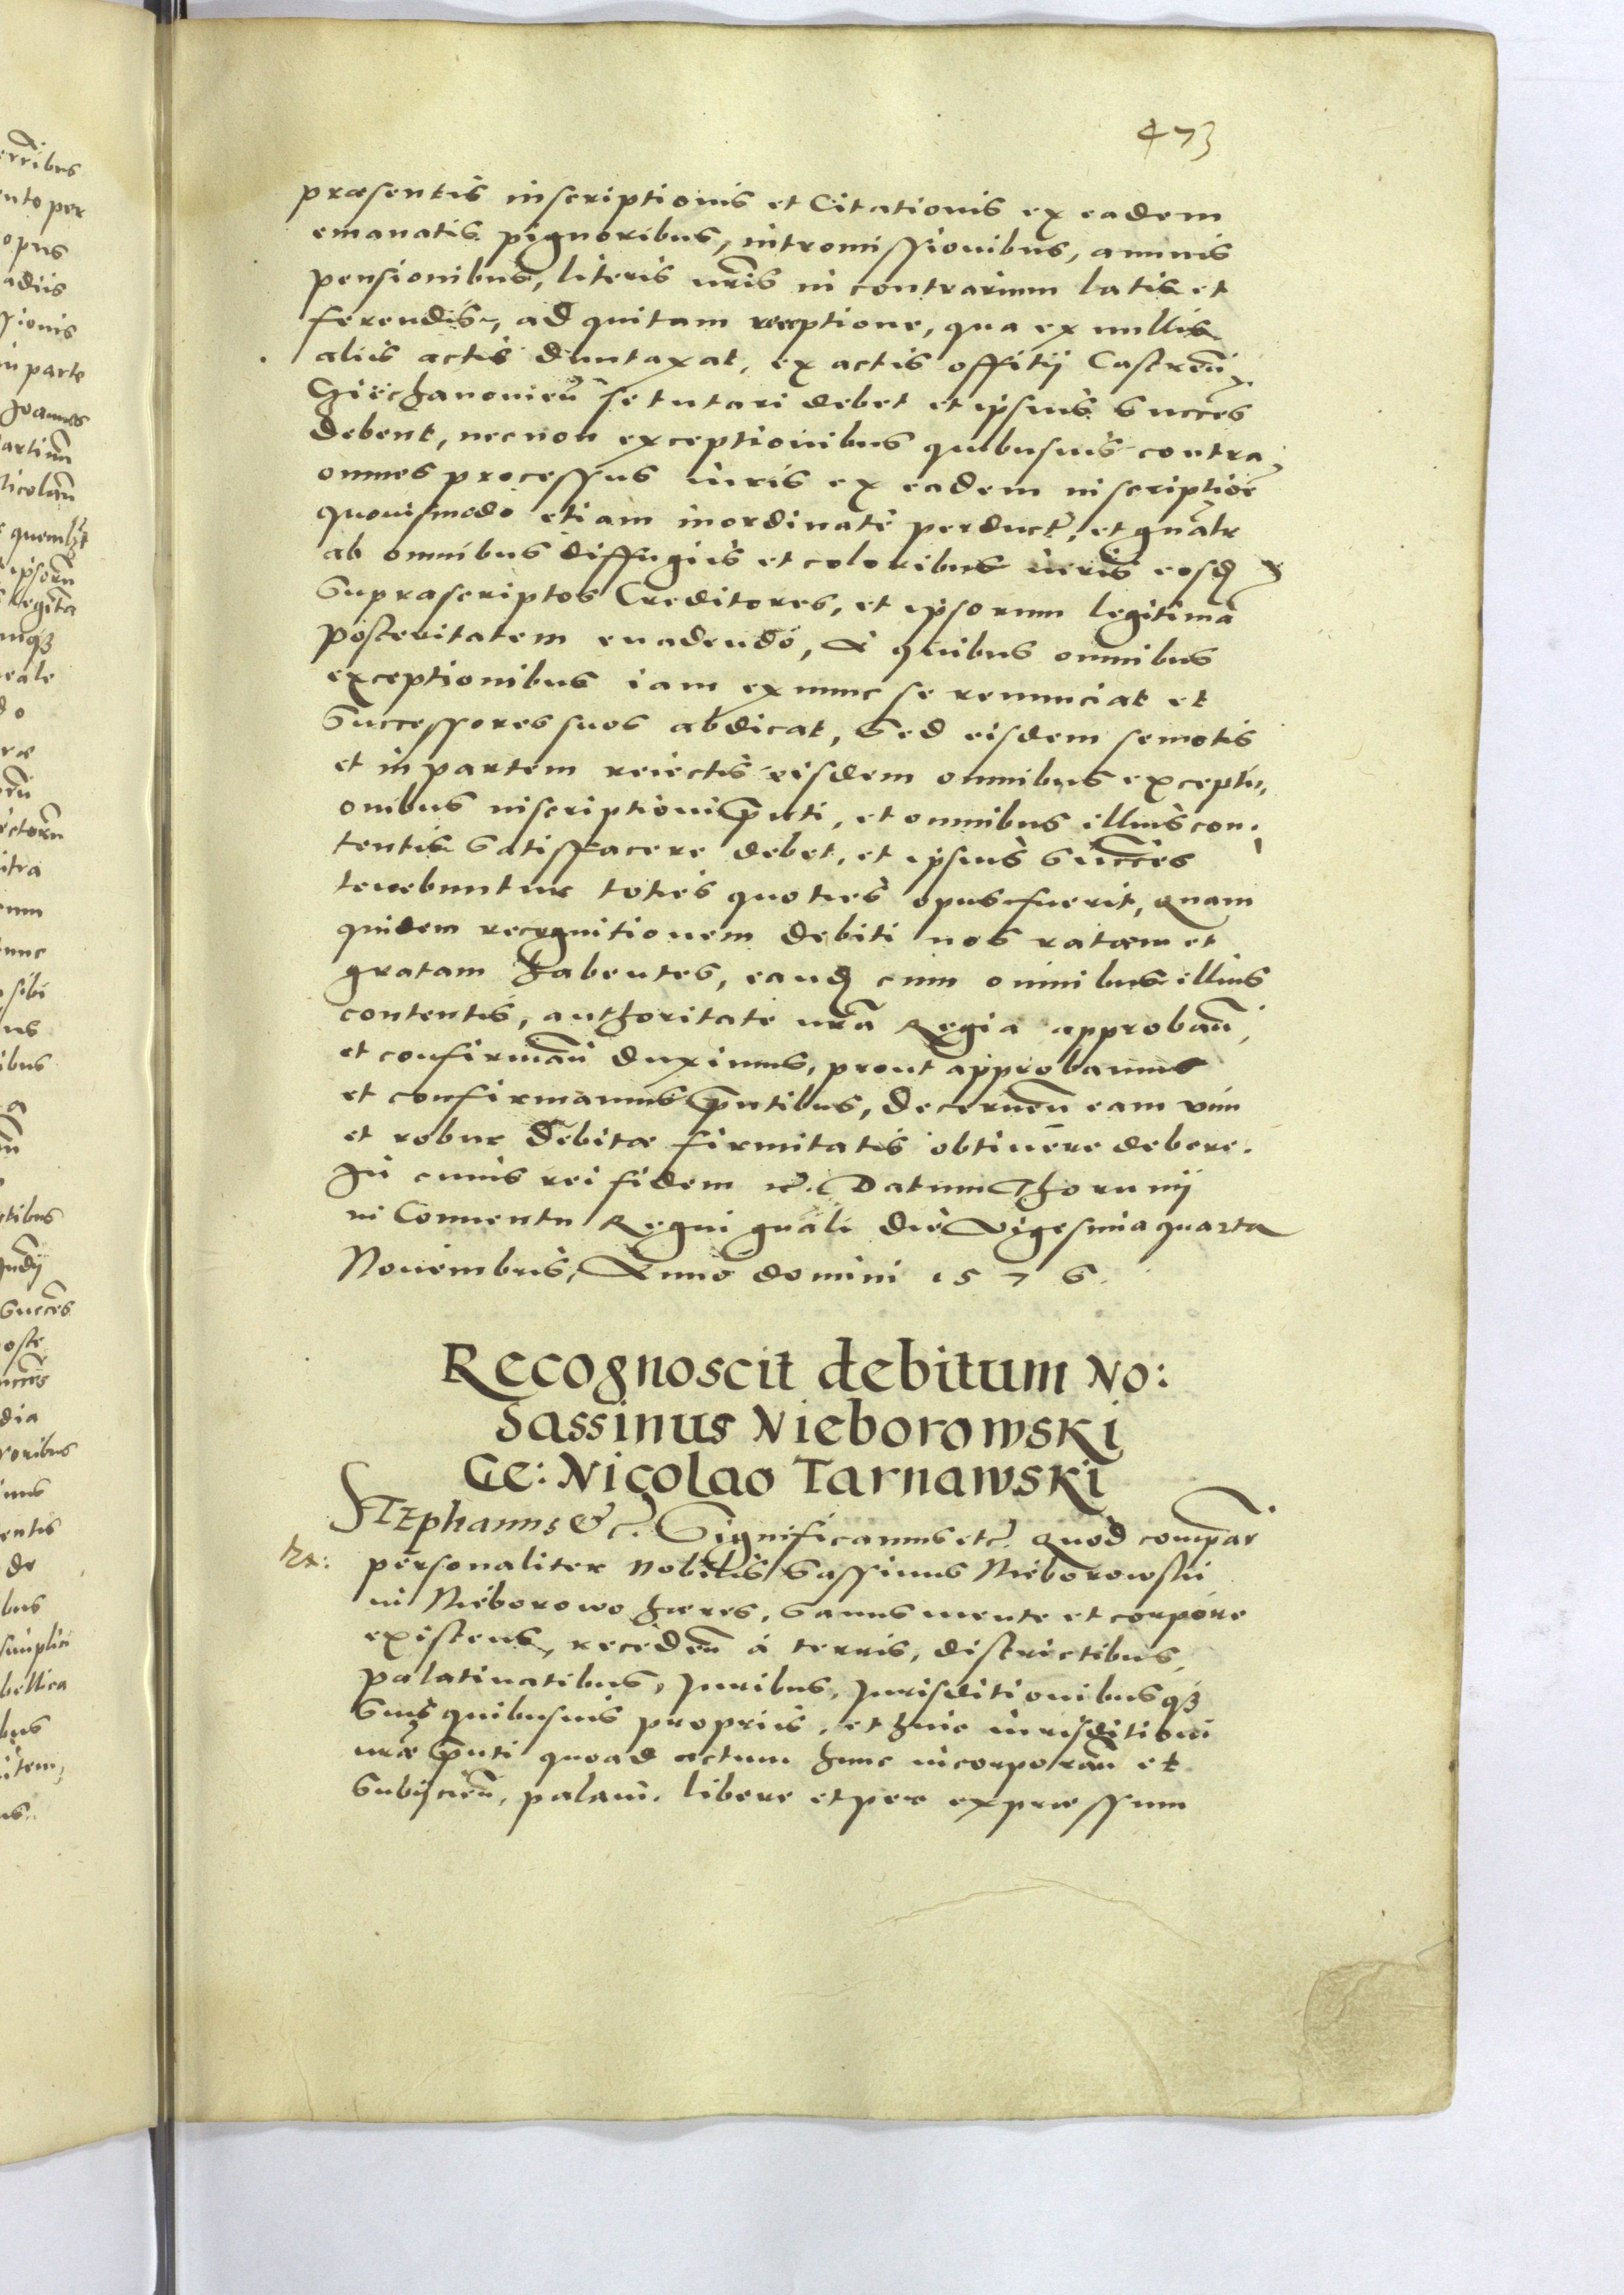 473
præsentis inscriptionis et Citationis ex eadem
emanatis pignoribus, intromissionibus, annuis
pensionibus, literis nr̃is in contrarium latis et
ferendis, ad quitam receptione, qua ex nullis
aliis actis duntaxat, ex actis offitij Castreñ
Ciechanovieñ se tutari debet et ipsius Succes̃
debent, necnon exceptionibus quibusvis contra
omnes processus iuris ex eadem inscriptioẽ
quovismodo etiam inordinatè perduct̃, et gñalr
ab omnibus diffugiis et coloribus iuris eosdꝫ
Suprascriptos Creditores, et ipsorum legitimã
posteritatem evadendo, A quibus omnibus
exceptionibus iam ex nunc se renunciat et
Successores suos abdicat, Sed eisdem semotis
et in partem reiectis eisdem omnibus excepti,
onibus inscriptioni p̃nti, et omnibus illius con,
tentis Satisfacere debet, et ipsius Succes̃
tenebuntur toties quoties opus fuerit, Quam
quidem recognitionem debiti nos ratam et
gratam habentes, eandꝫ cum omnibus illius
contentis, authoritate nr̃a Regia approbañ,
et confirmañ duximus, prout approbamus
et confirmamus p̃ntibus, decerneñ eam vim
et robur debitæ firmitatis obtinere debere.
In cuius rei fidem etc̃. Datum Thorunij
in Conventu Regni gñali die Vigesima quarta
Novembris, Anno domini 1576.
Recognoscit debitum No:
Sassinus Nieborowski
Ge: Nicolao Tarnawski
Stephanus &c̃. Significamus etc̃ Quod compar̃
personaliter Nobilis Sassinus Nieborowski
in Nieborowo hæres, Sanus mente et corpore
existens, recedeñ à terris, districtibus,
palatinatibus, Juribus, Jurisditionibusqꝫ
Suis quibusvis propriis, et huic iurisditioni
nr̃æ p̃nti quoad actum hunc incorporañ et
Subijcieñ, palam, libere et per expressum